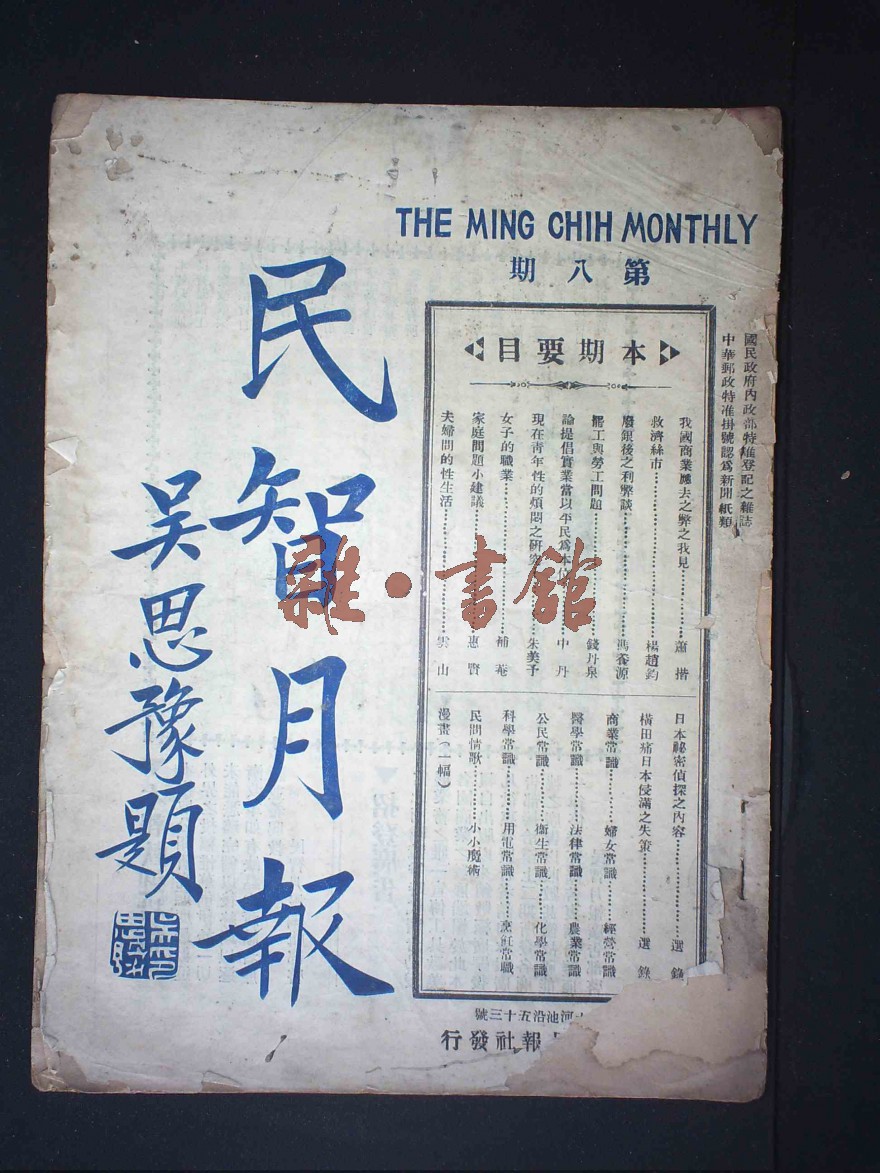 THE MING CHIH MONTHLY
第八期
國民政府內政部特准登記之雜誌
中華郵政特准掛號認爲新聞紙類
本期要目
我國商業應去之弊之我見⋯⋯蕭揩
救濟絲市⋯⋯楊趙鈞
廢銀後之利弊談⋯⋯馮養源
罷工與勞工問題⋯⋯錢丹泉
論提倡實業當以平民爲本位⋯⋯中丹
現在青年性的煩悶之研究⋯⋯朱美予
女子的職業⋯⋯補菴
家庭問題小建議⋯⋯惠賢
夫婦間的性生活⋯⋯雲山
日本祕密偵探之內容⋯⋯選錄
橫田痛日本侵滿之失策⋯⋯選錄
商業常識⋯⋯婦女常識⋯⋯經營常識
醫學常識⋯⋯法律常識⋯⋯農業常識
公民常識⋯⋯衞生常識⋯⋯化學常識
科學常識⋯⋯用電常識⋯⋯烹飪常職
民間情歌⋯⋯小小魔術
漫畫(一幅)
河池沿五十三號
報社發行
民智月報
吴思豫題
雜·書館